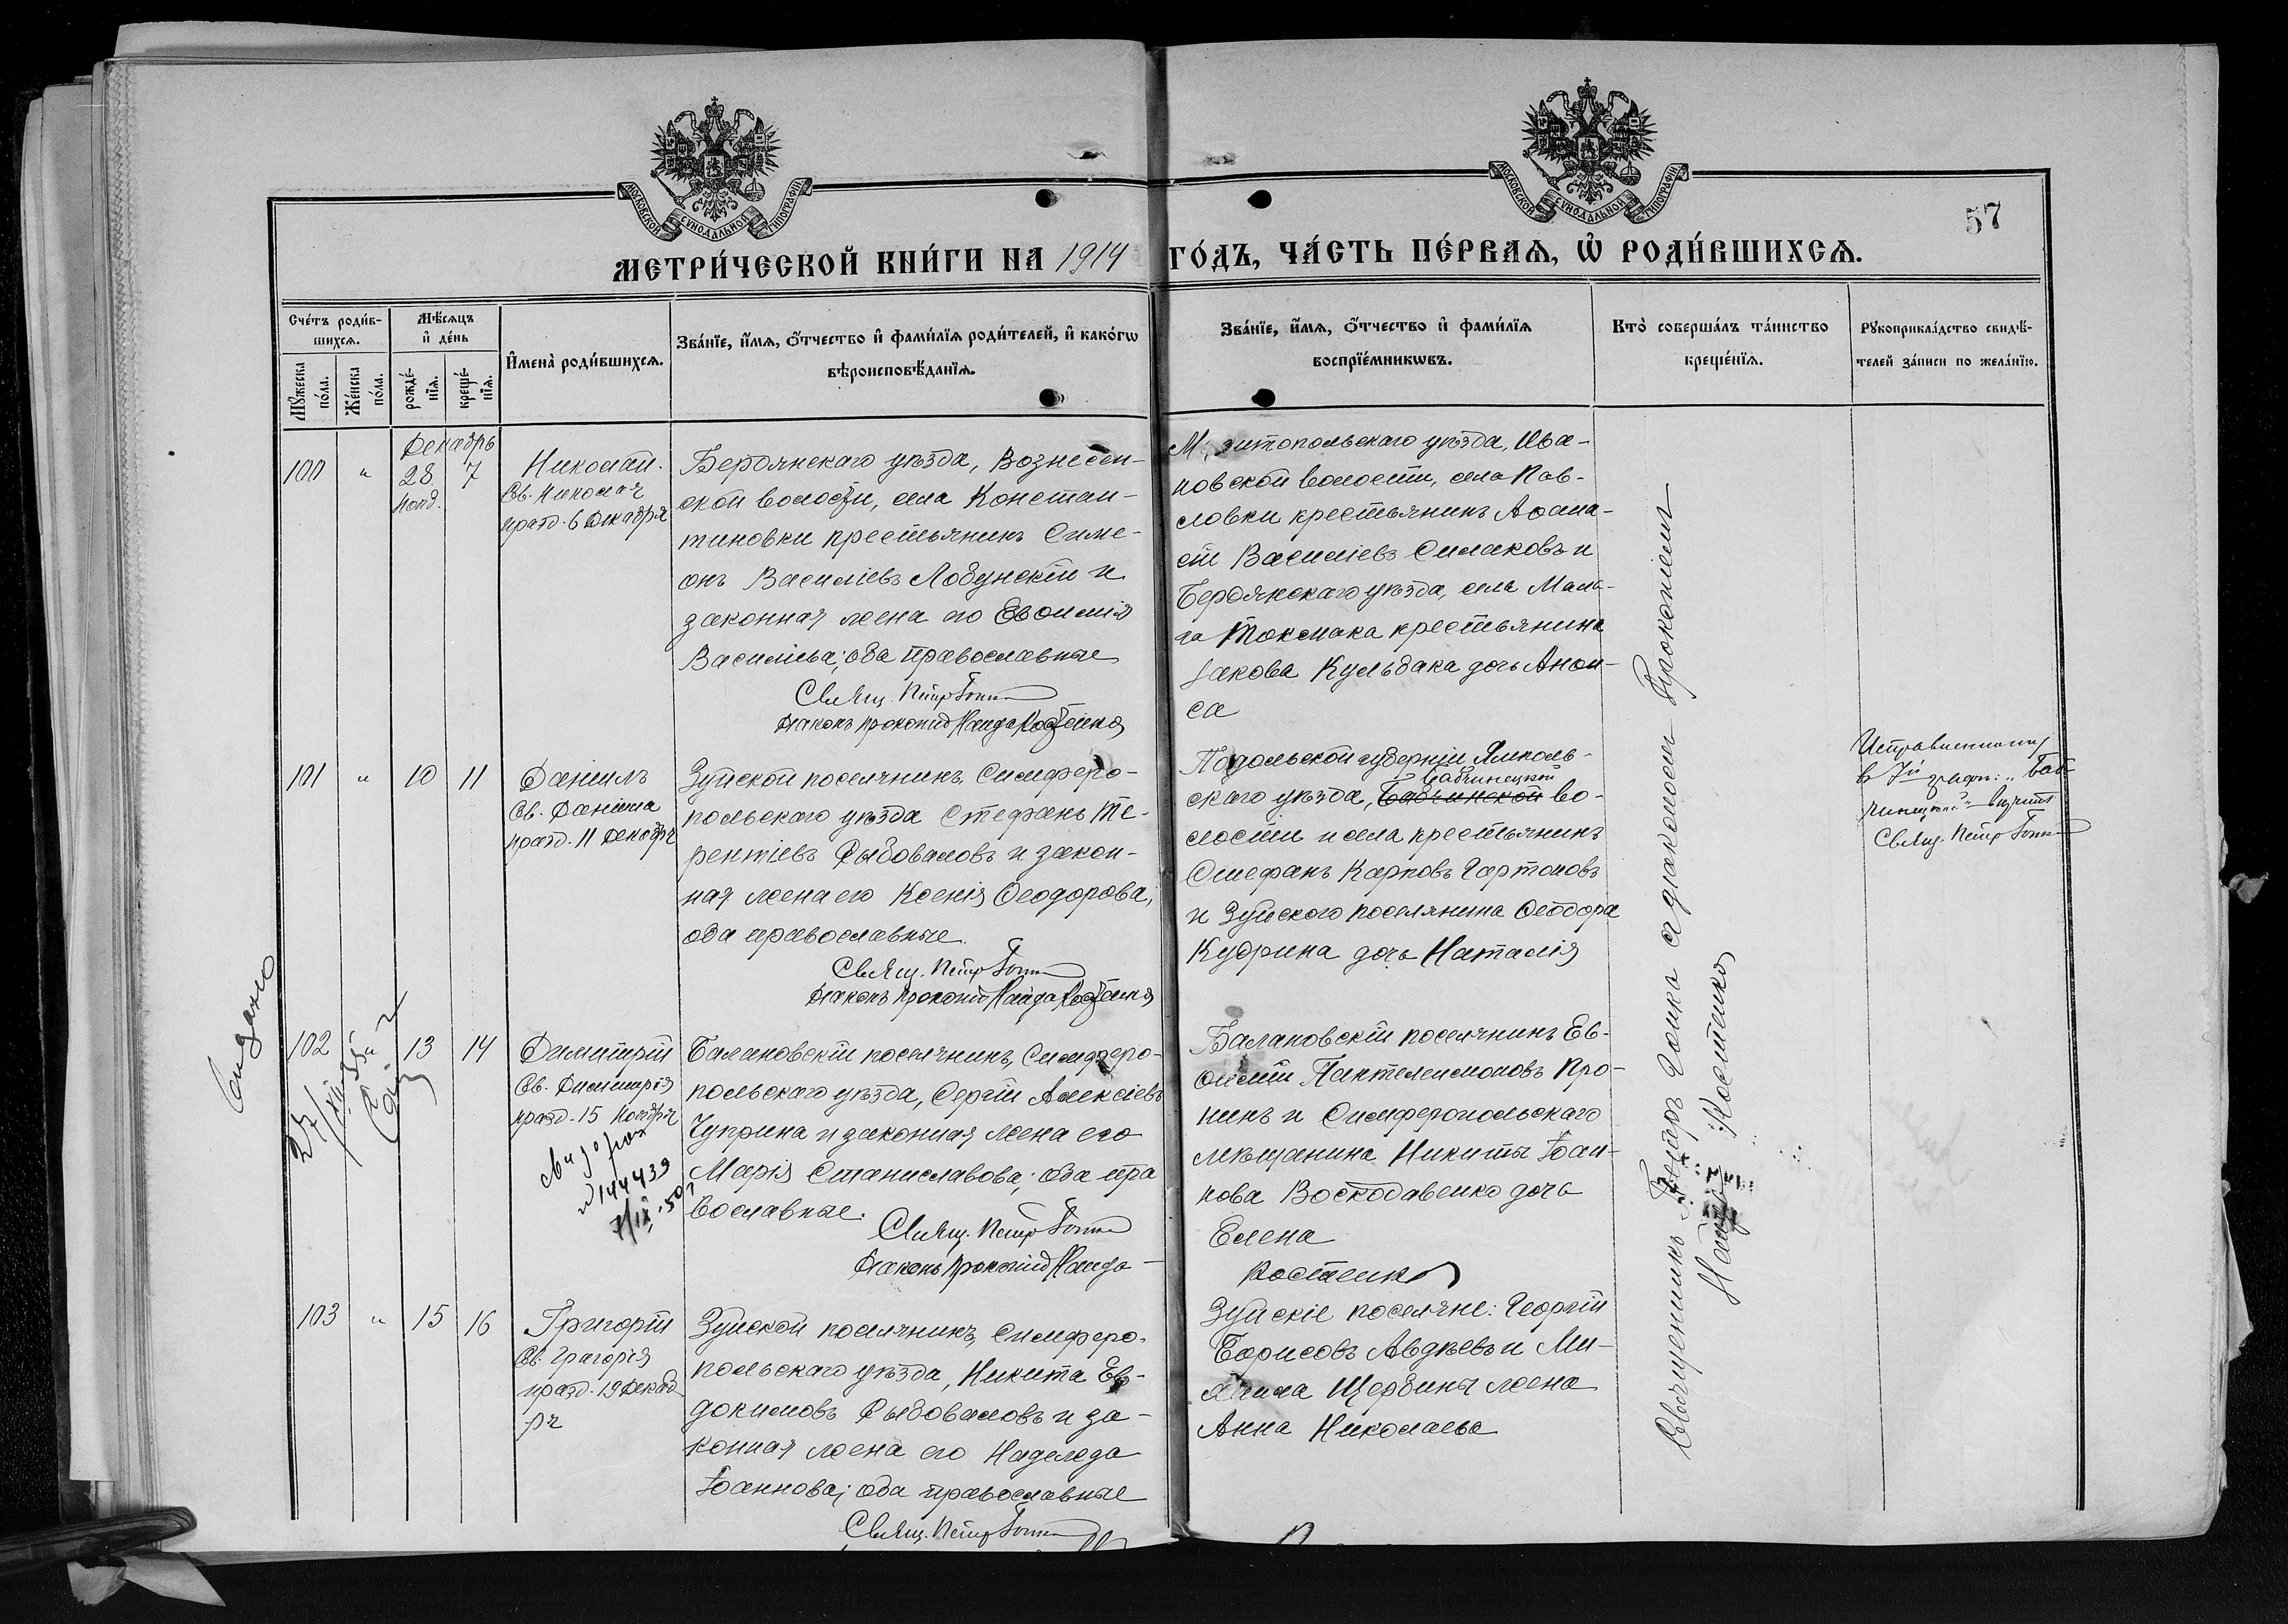 МОСКОВСКОЙ СѴНОДАЛЬНОЙ ТИПОГРАФІИ
МОСКОВСКОЙ СѴНОДАЛЬНОЙ ТИПОГРАФІИ
57
МЕТРИ́ЧЕСКОЙ КНИ́ГИ НА 1914 ГО́ДЪ, ЧА́СТЬ ПЕ́РВАЯ, Ѡ҆ РОДИ́ВШИХСЯ.
Сче́тъ роди́в-
шихся.
Мꙋ́жеска по́ла.
Же́нска по́ла.
Мѣ́сяцъ
и҆ де́нь
рожде́-нїя.
креще́-нїя.
И҆мена̀ роди́вшихся.
Зва́нїе, и҆́мя, ѻ҆́тчество и҆ фами́лїя роди́телей, и҆ како́гѡ
вѣроисповѣ́данїя.
Зва́нїе, и҆́мя, ѻ҆́тчество и҆ фами́лїя
воспрїе́мникѡвъ.
Кто̀ соверша́лъ та́инство
креще́нїя.
Рꙋкоприкла́дство свидѣ́-
телей за́писи по жела́нїю.
Декабрь
100 " 28 7
Нояб.
Николай.
Св. Николая
празд. 6 Декабря
Бердянскаго уѣзда, Вознесен-
ской волости, села Констан-
тиновки крестьянинъ Симе-
онъ Василіевъ Лобунскій и
законная жена его Евѳимія
Василіева; оба православные
Свящ. Петр
Діаконъ Прокопій Найда Костенко
Мелитопольскаго уѣзда, Ива-
новской волости, села Пав-
ловки крестьянинъ Аѳана-
сій Василіевъ Симаковъ и
Бердянскаго уѣзда, села Мала-
га Токмака крестьянина
Іакова Кульбака дочь Анѳи-
са
101 " 10 11
Даніилъ
Св. Даніила
празд. 11 Декабря
Зуйской поселянинъ, Симферо-
польскаго уѣзда Стефанъ Те-
рентіевъ Рыбоваловъ и закон-
ная жена его Ксенія Ѳеодорова,
оба православные.
Свящ. Петр
Діаконъ Прокопій Найда Костенко
Подольской губерніи Ямполь-
Бабчинецкой
скаго уѣзда, Бабчинской во-
лости и села крестьянинъ
Стефанъ Карповъ Гартоновъ
и Зуйского поселянина Ѳеодора
Кудрина дочь Наталія
Исправленному
в 7й графѣ: „Баб-
чинецкой" вѣрить
Свящ. Петр
102 " 13 14
Димитрій
Св. Димитрія
празд. 15 Ноября
№ 144439
Балановскій поселянинъ, Симферо-
польскаго уѣзда, Сергій Алексіевъ
Чуприна и законная жена его
Марія Станиславова; оба пра
вославные.
Свящ. Петр
Діаконъ Прокопій Найда-
Балановскій поселянинъ Ев-
ѳимій Пантелеимоновъ Про-
нинъ и Симферопольскаго
мѣщанина Никиты Іоан-
нова Воскодавенко дочь
Елена
Костенко
103 " 15 16
Григорій
Св. Григорія
празд. 19 Декаб-
ря
Зуйской поселянинъ, Симферо-
польскаго уѣзда, Никита Ев-
докимовъ Рыбоваловъ и за-
конная жена его Надежда
Іоаннова; оба православные
Свящ. Петр
Зуйскіе поселяне: Георгій
Борисовъ Авдѣевъ и Ми-
хаила Щербины жена
Анна Николаева
Священникъ Петръ Гопка с діакономъ Прокопіемъ
Найда-Костенко